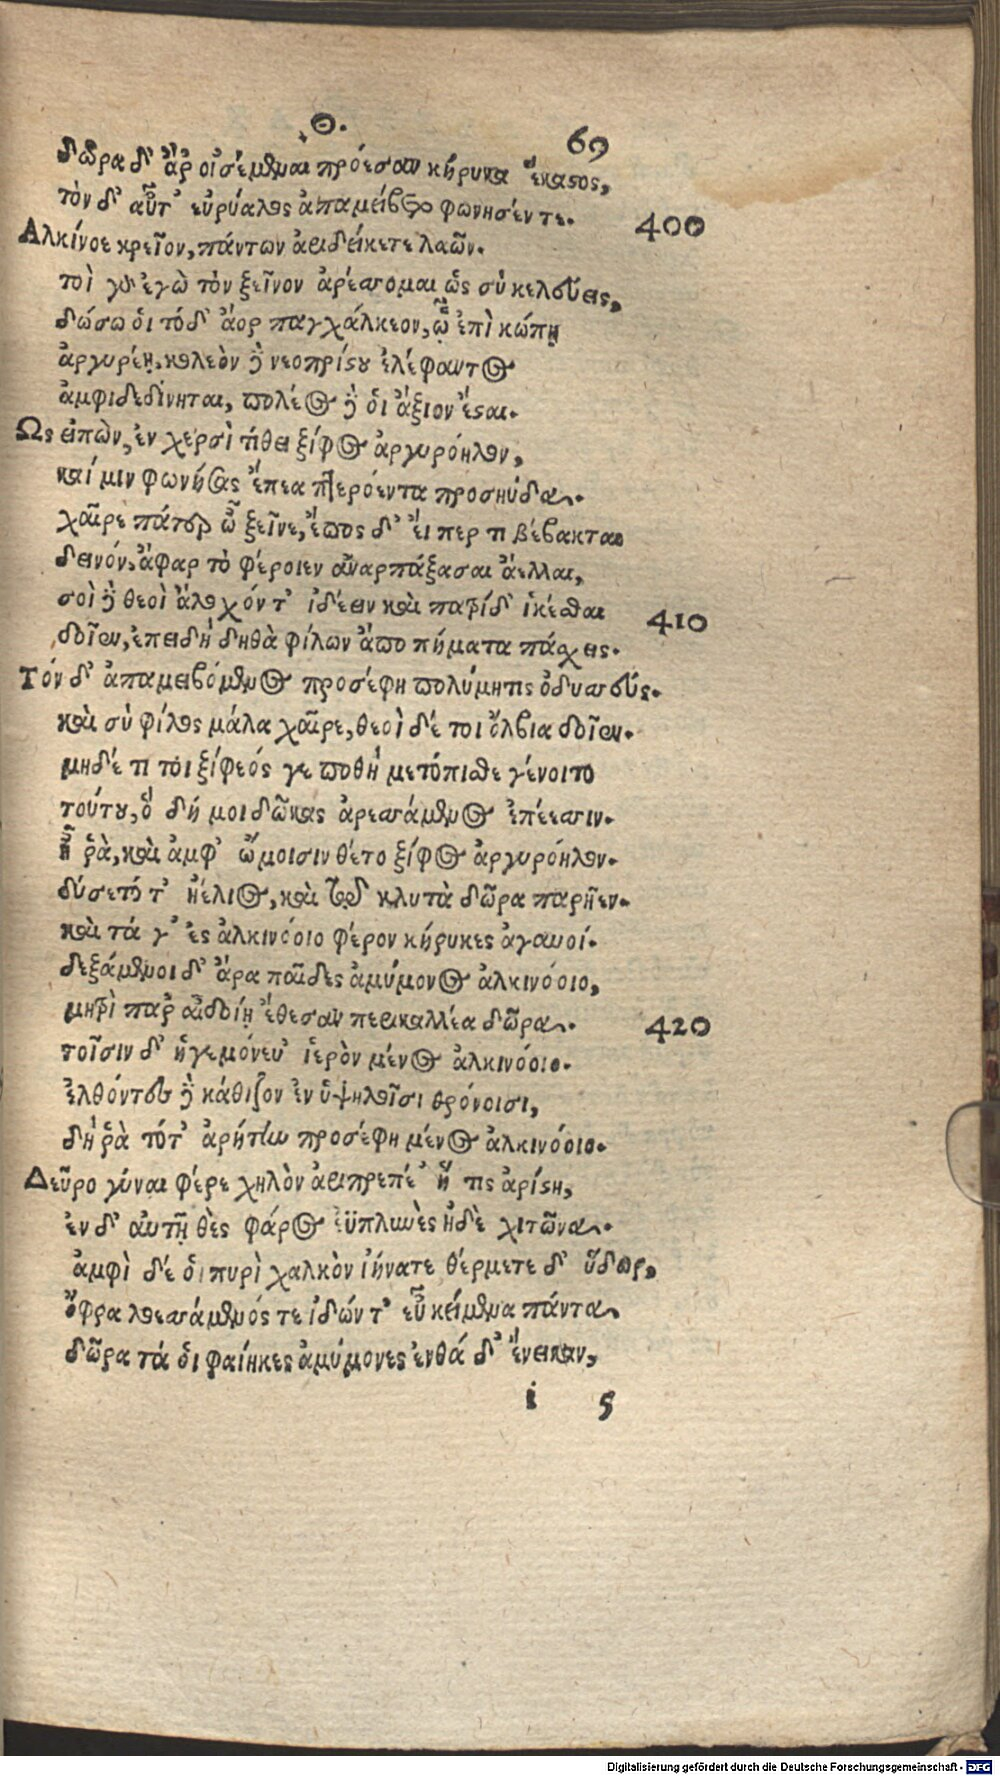 Θ. 69
δῶρα δ' ἄρ οἰσέμεναι πρόεσαν κήρυκα ἕκαστος,
τὸν δ' αὖτ' εὐρύαλος ἀπαμείβετο φωνησέν τε. 400
Αλκίνοε κρεῖον, πάντων ἀειδείκετε λαῶν.
τοὶ γὰρ ἐγὼ τὸν ξεῖνον ἀρέσσομαι ὡς σὺ κελεύεις,
δώσω ὁι τόδ' ἄορ παγχάλκεον, ᾧ ἐπὶ κώπη
ἀργυρέη, κολεὸν δὲ νεοπρίστου ἐλέφαντος
ἀμφιδεδίνηται, πολέος δὲ ὁι ἄξιον ἔσται.
Ως ειπὼν, ἐν χερσὶ τίθει ξίφος ἀργυρόηλον,
καί μιν φωνήσας ἔπεα πτερόεντα προσηύδα.
χαῖρε πάτερ ὦ ξεῖνε, ἔπος δ' ἔι περ τι βέβακται
δεινόν, ἄφαρ τὸ φέροιεν ἀναρπάξασαι ἄελλαι,
σοὶ δὲ θεοὶ ἄλοχόν τ' ἰδέειν καὶ πατρίδ' ἱκέσθαι 410
δοῖεν, ἐπειδὴ δηθὰ φίλων ἄπο πήματα πάσχεις.
Τόν δ' ἀπαμειβόμενος προσέφη πολύμητις ὀδυσσεύς.
καὶ σὺ φίλος μάλα χαῖρε, θεοὶ δέ τοι ὄλβια δοῖεν.
μηδέ τι τοι ξίφεός γε ποθὴ μετόπισθε γένοιτο
τούτου, ὅ δή μοι δῶκας ἀρεσσάμενος ἐπέεσσιν.
ἦ ῥὰ, καὶ ἀμφ' ὤμοισιν θέτο ξίφος ἀργυρόηλον.
δύσετό τ' ἠέλιος, καὶ τῷ κλυτὰ δῶρα παρῆεν.
καὶ τά γ' ἐς ἀλκινόοιο φέρον κήρυκες ἀγαυοί.
δεξάμενοι δ' ἄρα παῖδες ἀμύμονος ἀλκινόοιο,
μητρὶ παρ αἰδοίῃ ἔθεσαν περικαλλέα δῶρα. 420
τοῖσιν δ' ἡγεμόνευ' ἱερὸν μένος ἀλκινόοιο.
ἐλθόντες δὲ κάθιζον ἐν ὑψηλοῖσι θρόνοισι,
δὴ ῥὰ τότ' ἀρήτην προσέφη μένος ἀλκινόοιο.
Δεῦρο γύναι φέρε χηλὸν ἀειπρεπέ' ἥ τις ἀρίστη,
ἐν δ' ἀυτῇ θὲς φάρος ἐϋπλυνὲς ἠδὲ χιτῶνα.
ἀμφὶ δέ ὁι πυρὶ χαλκὸν ἰήνατε θέρμετε δ' ὕδωρ,
ὄφρα λοεσσάμενός τε ἰδών τ' εὖ κείμενα πάντα
δῶρα τά ὁι φαίηκες ἀμύμονες ἐνθά δ' ἔνεικαν,
i 5
Digitalisierung gefördert durch die Deutsche Forschungsgemeinschaft - DFG